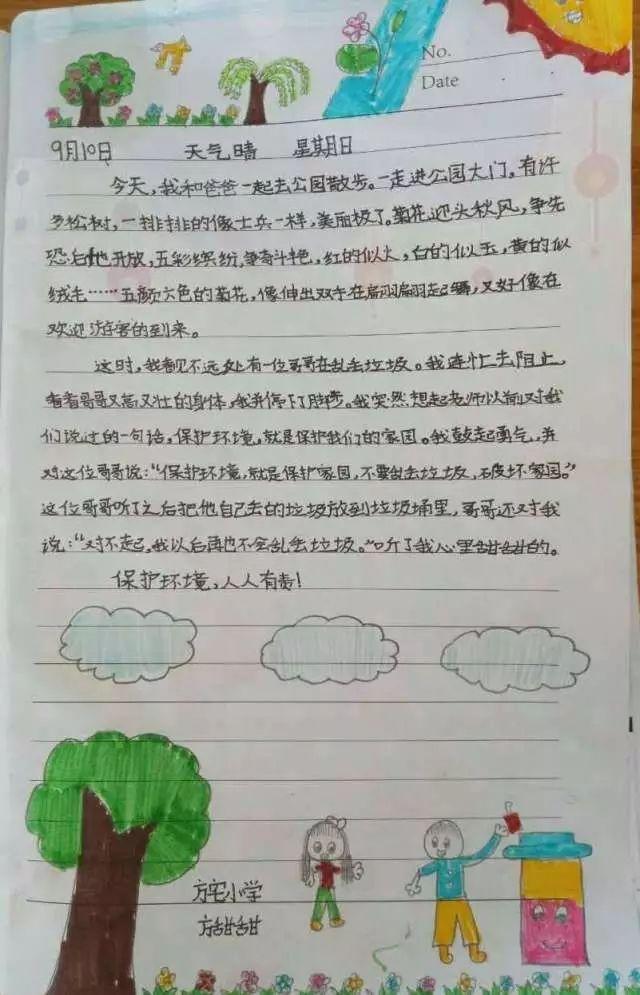 No.
Date
9月10日 天气晴 星期日
今天,我和爸爸一起去公园散步。一走进公园大门。有许
多松树,一排排的像士兵一样,美丽极了。菊花迎头秋风,争先
恐后地开放,五彩缤纷,争奇斗艳,红的似火,白的似玉,黄的似
绒毛……五颜六色的菊花,像伸出双手在扇翩翩起舞,又好像在
欢迎游客的到来。
这时,我看见不远处有一位哥哥在乱丢垃圾。我连忙去阻止,
看看哥哥又高又壮的身体,我并停下了脚步。我突然想起老师以前对我
们说过的一句话,保护环境,就是保护我们的家园。我鼓起勇气,并
对这位哥哥说:“保护环境,就是保护家园,不要乱丢垃圾,破坏家园。”
这位哥哥听了之后把他自己丢的垃圾放到垃圾桶里,哥哥还对我
说:“对不起,我以后再也不会乱丢垃圾。”听了我心里甜甜的。
保护环境,人人有责!
方宅小学
方甜甜